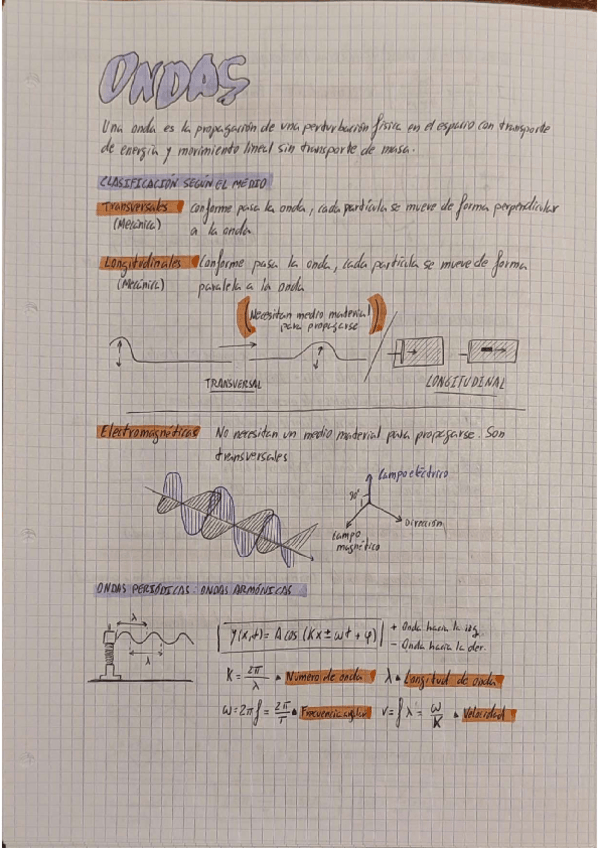 ONDAS
Una onda es la propagación de una perturbación física en el espacio con transporte
de energía y movimiento lineal sin transporte de masa.
CLASIFICACIÓN SEGÚN EL MEDIO
Transversales conforme pasa la onda, cada partícula se mueve de forma perpendicular
(Mecánica) a la onda
Longitudinales Conforme pasa la onda, cada partícula se mueve de forma
(Mecánica) paralela a la onda
(Necesitan medio material
para propagarse)
TRANSVERSAL LONGITUDINAL
Electromagnéticas No necesitan un medio material para propagarse. Son
transversales
Campo eléctrico
90°
Dirección
Campo
magnético
ONDAS PERIÓDICAS: ONDAS ARMÓNICAS
λ
λ
y(x,t) = A cos (Kx ± ωt + φ)
+ Onda hacia la izq.
- Onda hacia la der.
K = 2π/λ Número de onda λ Longitud de onda
ω = 2πf = 2π/T Frecuencia angular v = f λ = ω/K Velocidad